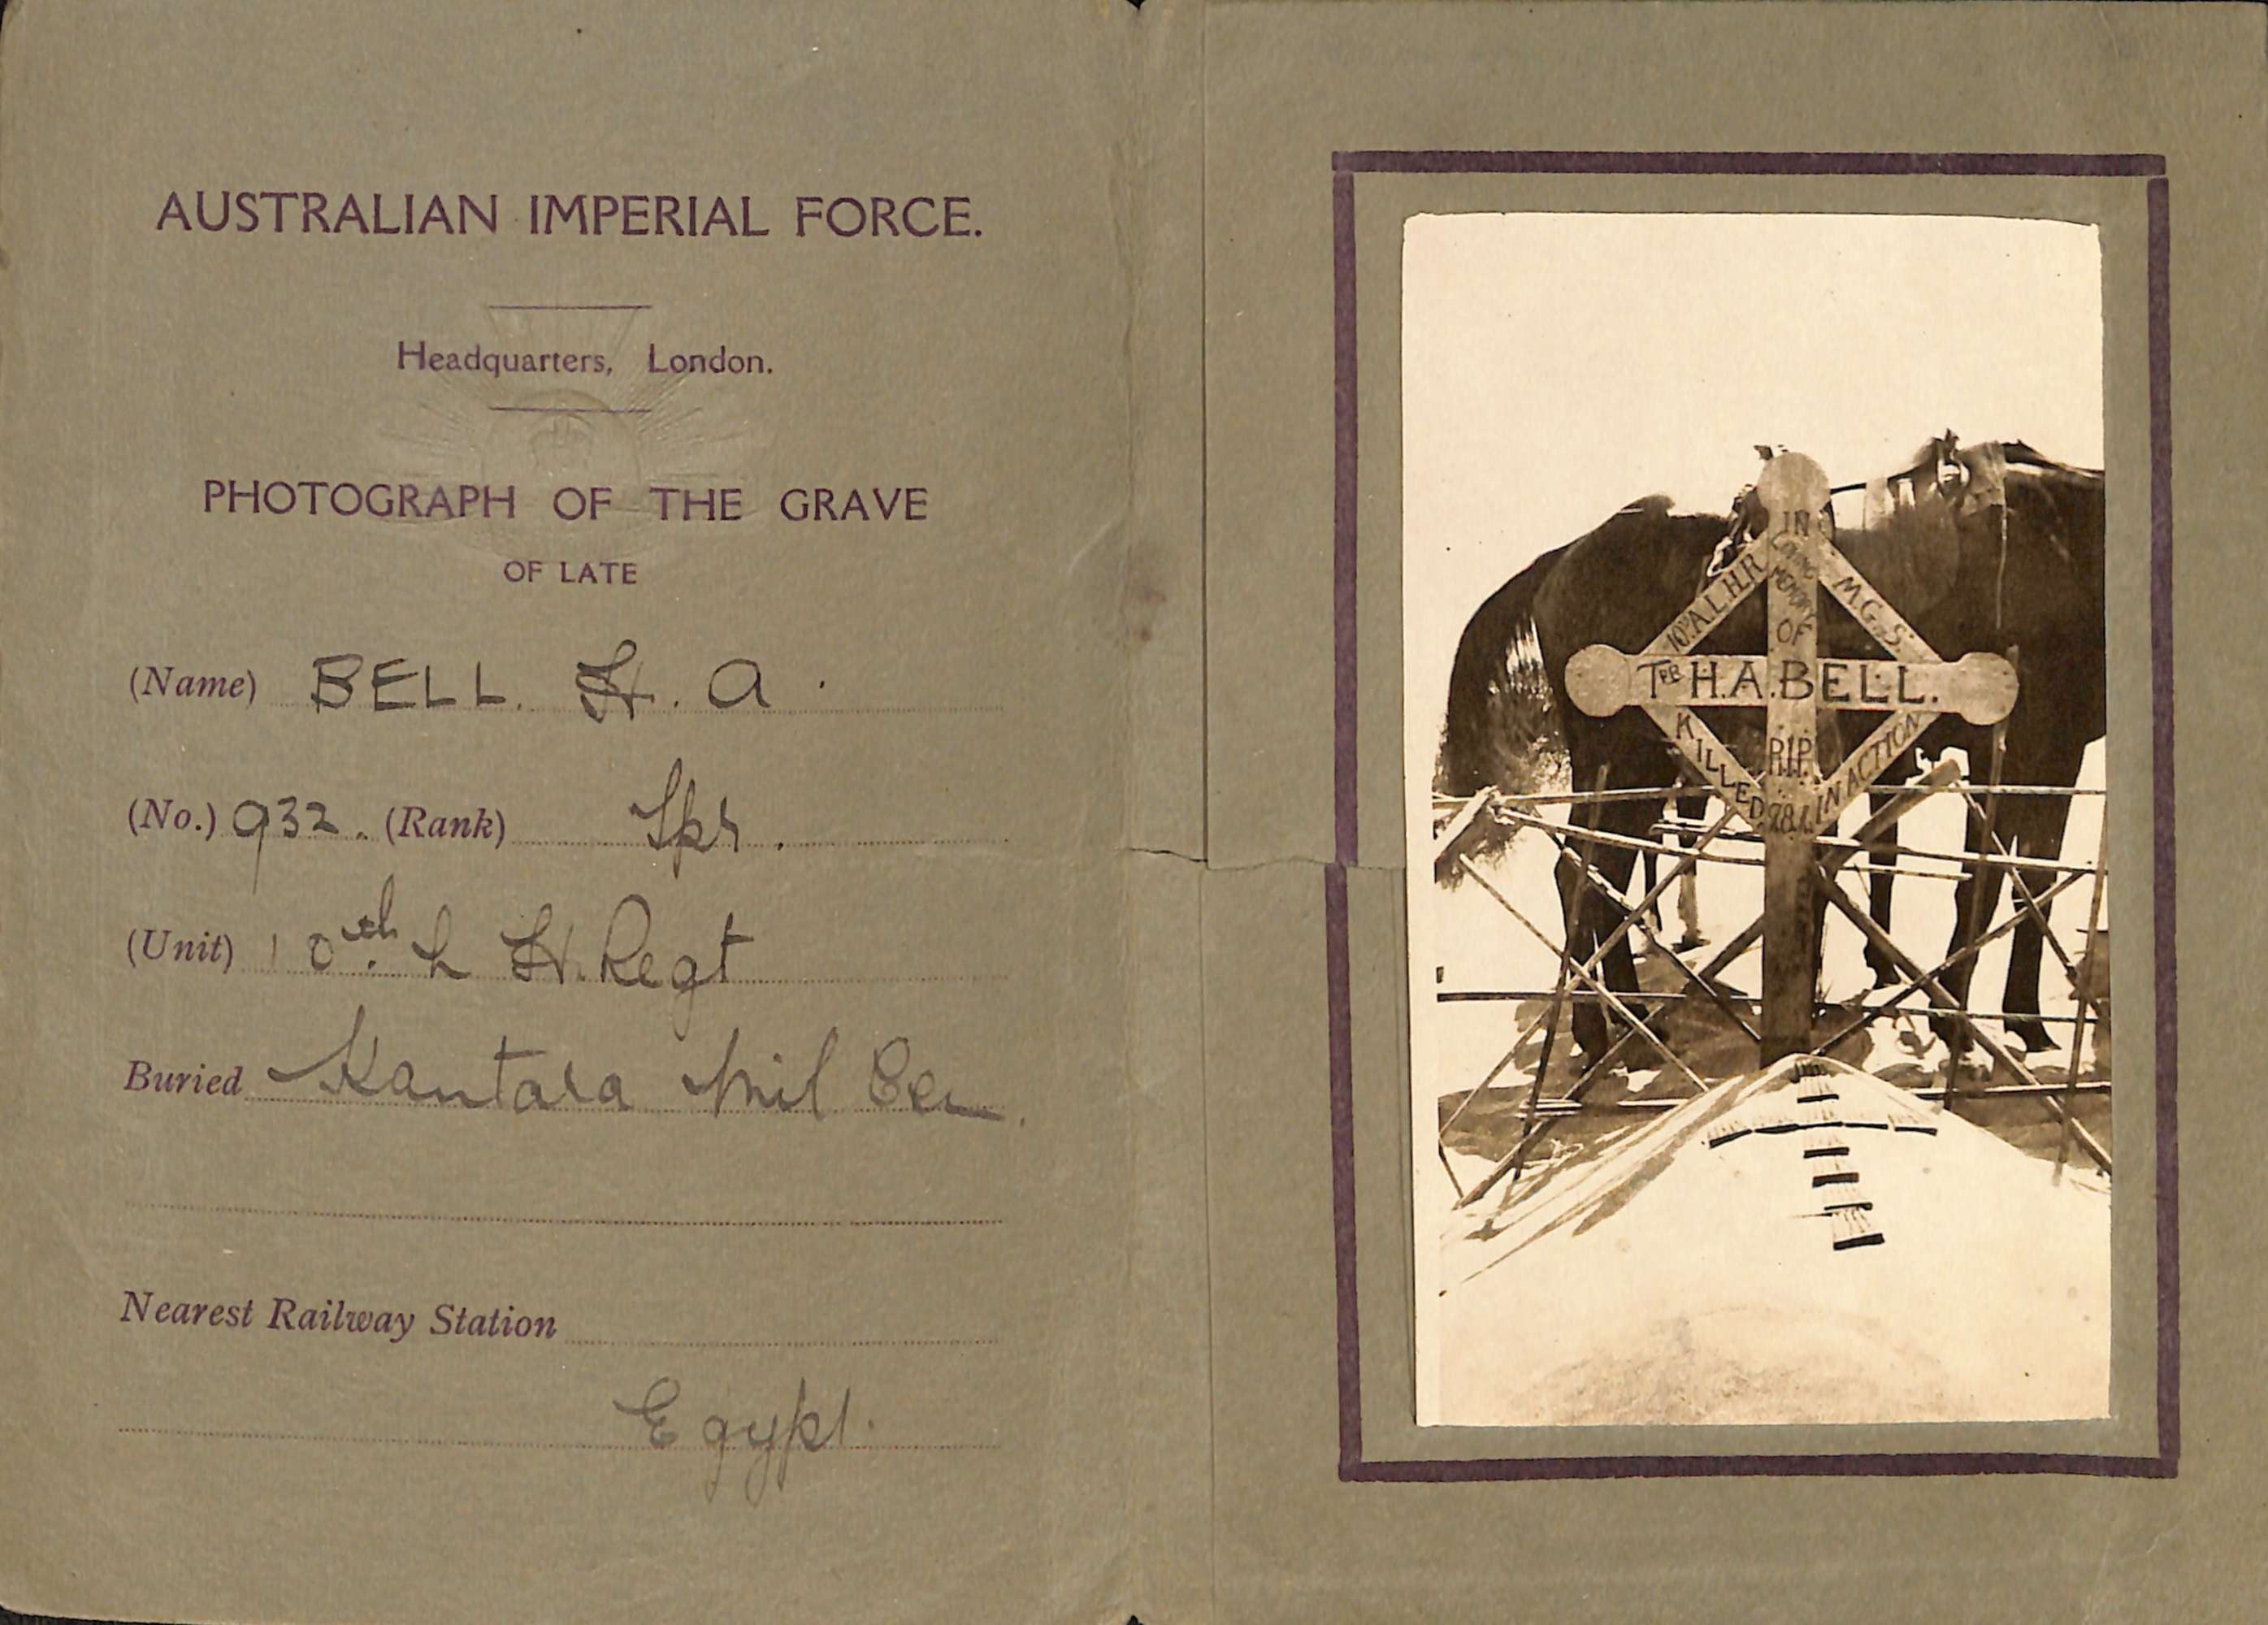 AUSTRALIAN IMPERIAL FORCE.
Headquarters, London.
PHOTOGRAPH OF THE GRAVE
OF LATE
(Name) BELL. H. A.
(No.) 932. (Rank) Tpr.
(Unit) 10th. L H. Regt
Buried Kantara Mil Cem.
Nearest Railway Station
Egypt.
IN
LOVING
MEMORY
OF
10TH A.L.H.R
M.G.S.
TPR H.A.BELL.
KILLED
R.I.P.
IN ACTION